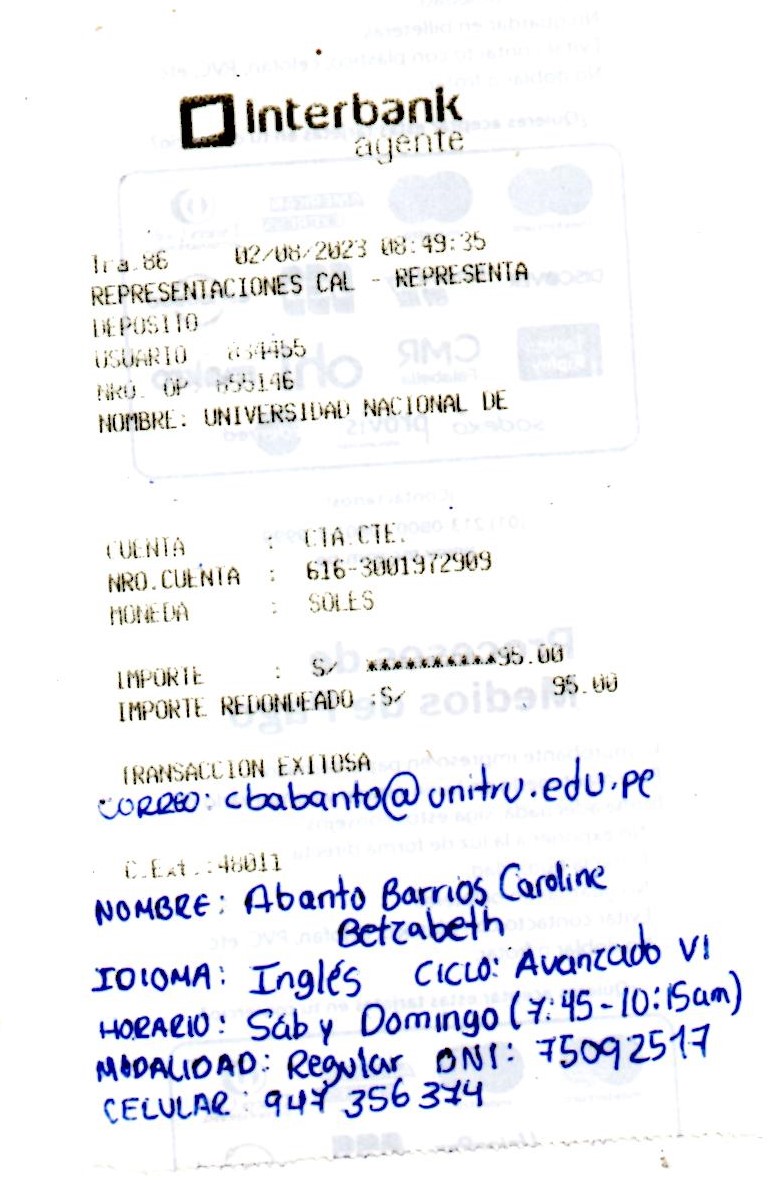 Interbank
agente
Tra.86 02/08/2023 08:49:35
REPRESENTACIONES CAL - REPRESENTA
DEPOSITO
USUARIO 834455
NRO. OP 855146
NOMBRE: UNIVERSIDAD NACIONAL DE
CUENTA : CTA.CTE.
NRO.CUENTA : 616-3001972909
MONEDA : SOLES
IMPORTE : S/ **********95.00
IMPORTE REDONDEADO :S/ 95.00
TRANSACCION EXITOSA
CORREO: cbabanto@unitru.edu.pe
C.Ext.:48011
NOMBRE: Abanto Barrios Caroline
Betzabeth
IDIOMA: Inglés CICLO: Avanzado VI
HORARIO: Sáb y Domingo (7:45-10:15am)
MODALIDAD: Regular DNI: 75092517
CELULAR: 947 356 374